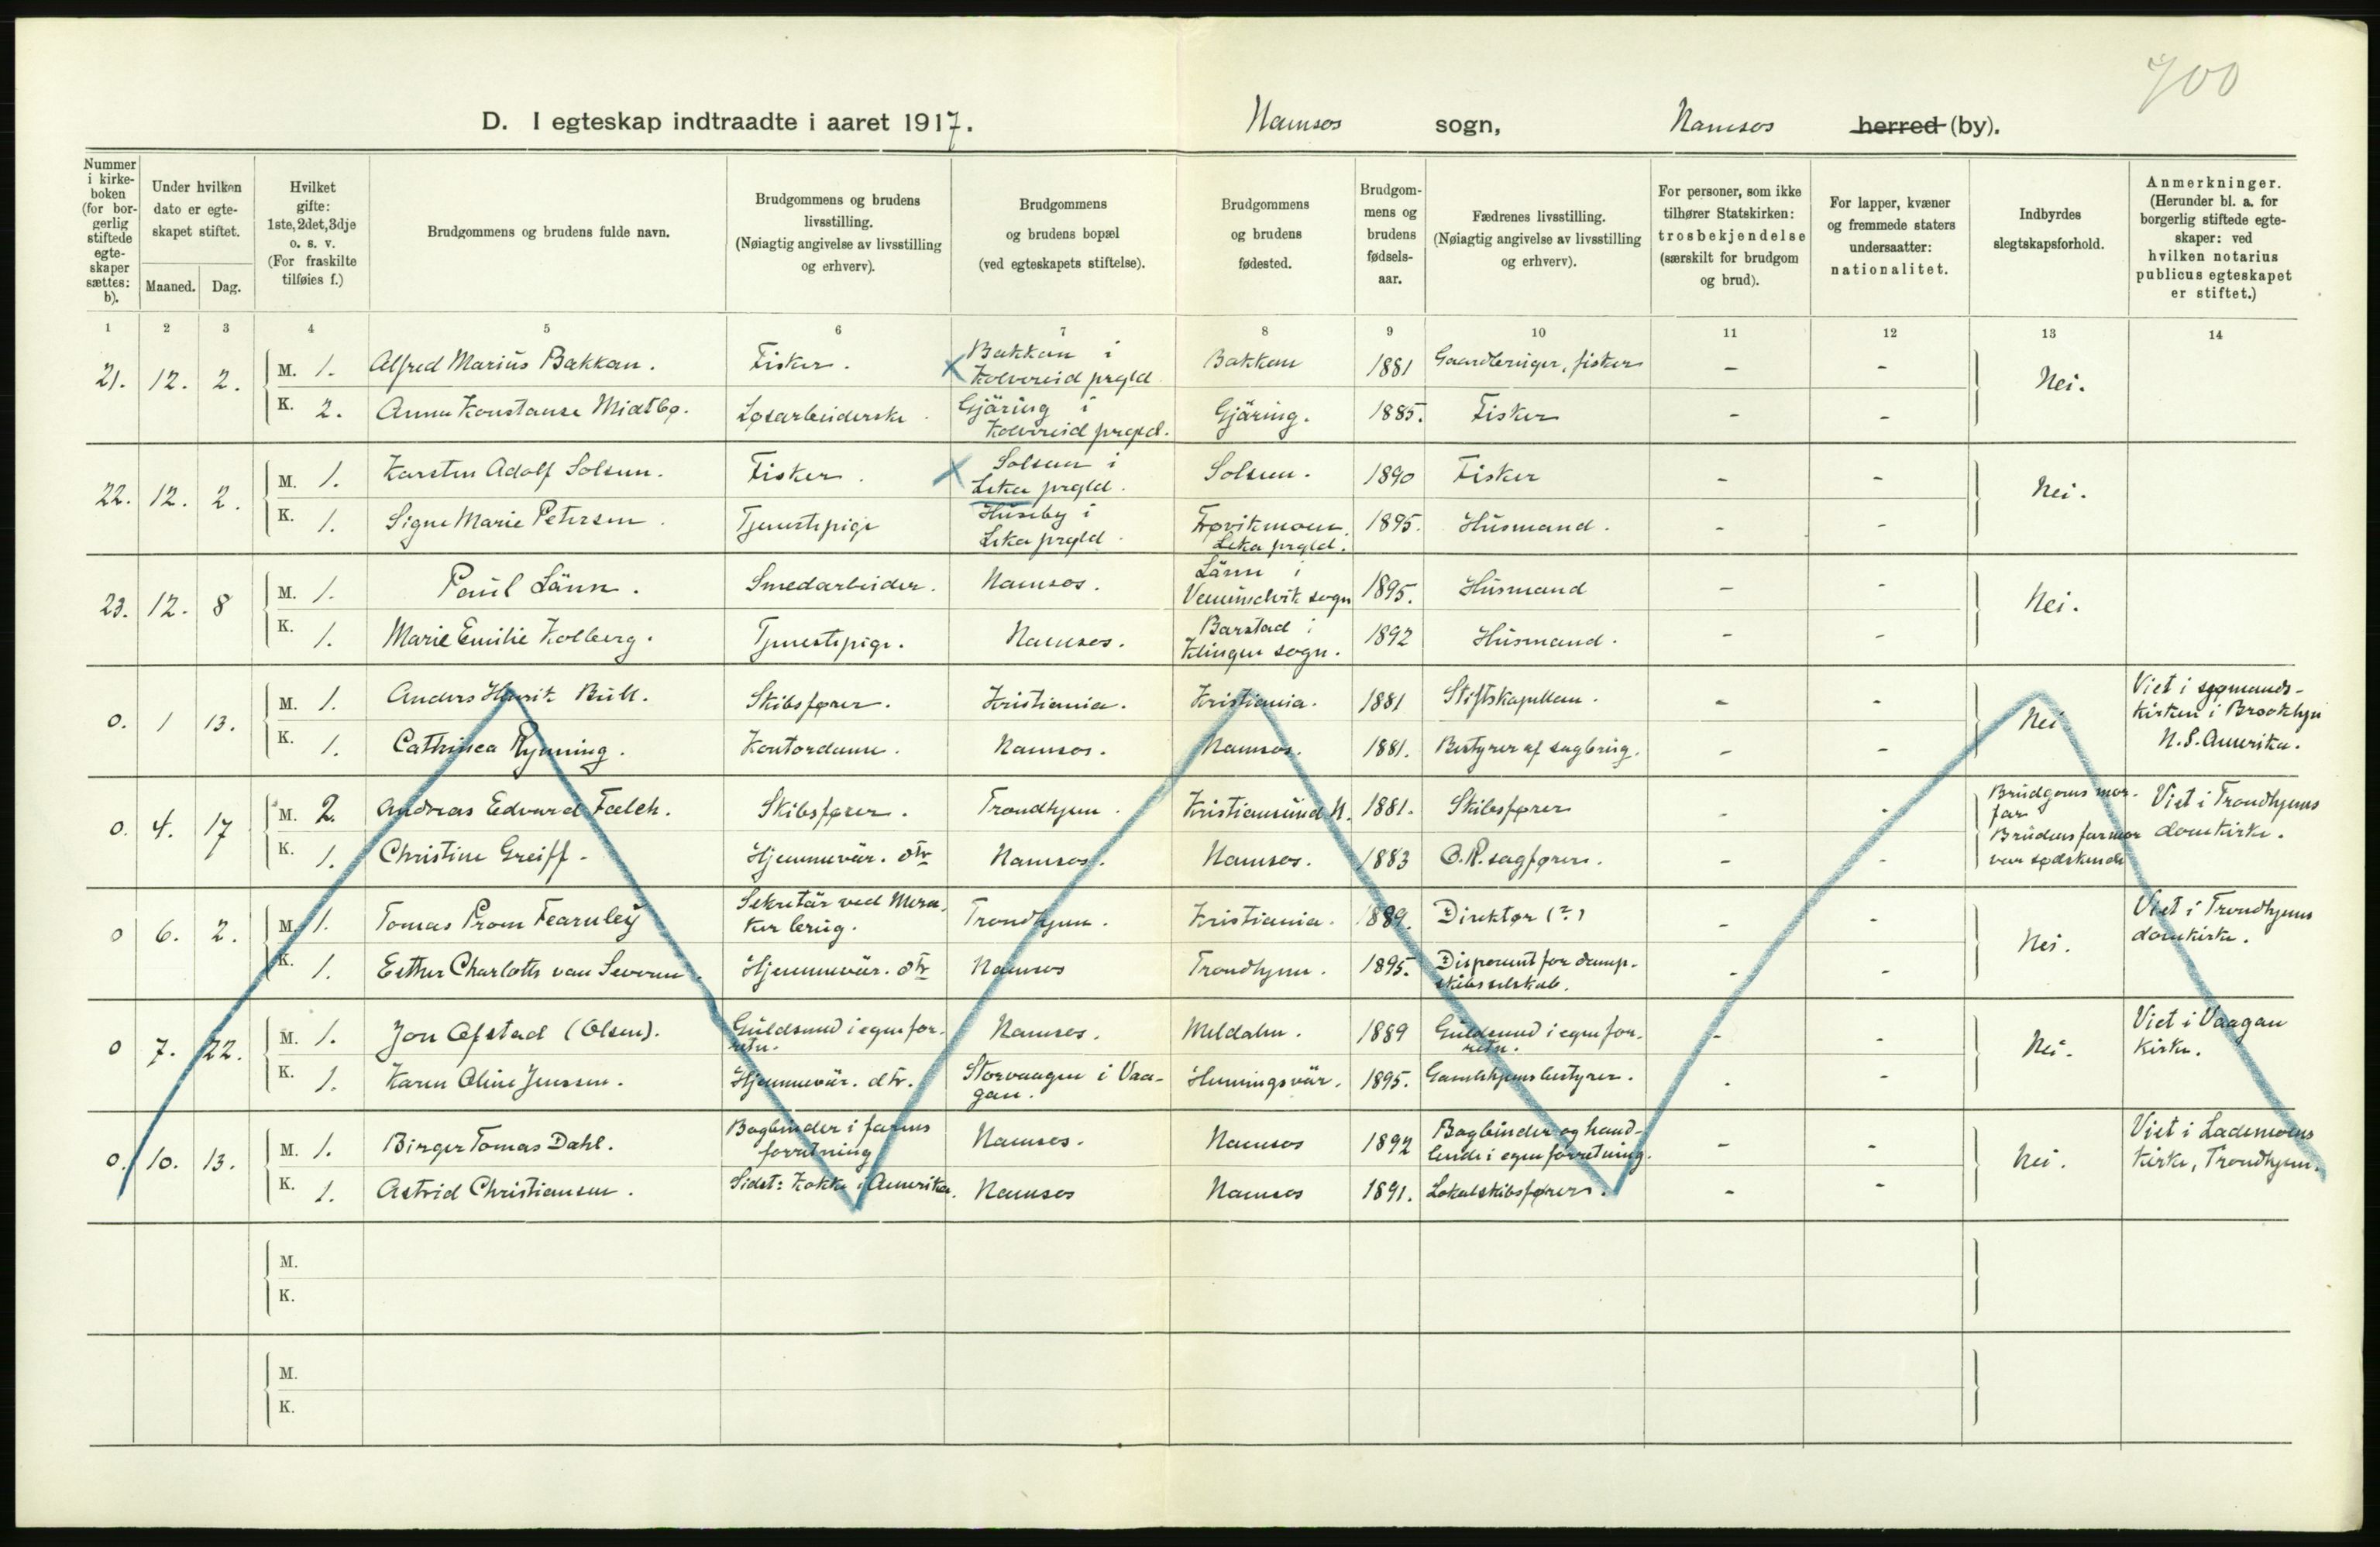 700
D. I egteskap indtraadte i aaret 1917. Namsos sogn, Namsos herred (by).
Nummer i kirkeboken (for borgerlig stiftede egteskaper sættes: b).
Under hvilken dato er egteskapet stiftet.
Maaned. Dag.
Hvilket gifte: 1ste, 2det, 3dje o. s. v. (For fraskilte tilføies f.)
Brudgommens og brudens fulde navn.
Brudgommens og brudens livsstilling. (Nøiagtig angivelse av livsstilling og erhverv).
Brudgommens og brudens bopæl (ved egteskapets stiftelse).
Brudgommens og brudens fødested.
Brudgommens og brudens fødselsaar.
Fædrenes livsstilling. (Nøiagtig angivelse av livsstilling og erhverv).
For personer, som ikke tilhører Statskirken: trosbekjendelse (særskilt for brudgom og brud).
For lapper, kvæner og fremmede staters undersaatter: nationalitet.
Indbyrdes slegtskapsforhold.
Anmerkninger. (Herunder bl. a. for borgerlig stiftede egteskaper: ved hvilken notarius publicus egteskapet er stiftet.)
1 2 3 4 5 6 7 8 9 10 11 12 13 14
21. 12. 2. M. 1. Alfred Marius Bakkan. Fisker. Bakkan i Kolvereid prgld Bakkan 1881 Gaardbruger, fisker - - Nei.
K. 2. Anna Konstanse Midtbø. Løsarbeiderske. Gjäring i Kolvereid prgld. Gjäring. 1885. Fisker - -
22. 12. 2. M. 1. Karsten Adolf Solsem. Fisker. Solsem i Leka prgld. Solsem. 1890 Fisker - - Nei.
K. 1. Signe Marie Petersen. Tjenestepige Huseby i Leka prgld. Frøvikmoen Leka prgld. 1895. Husmand. - -
23. 12. 8 M. 1. Paul Länn. Smedarbeider. Namsos. Länn i Vemundvik sogn 1895. Husmand - - Nei.
K. 1. Marie Emilie Kolberg. Tjenestepige. Namsos. Barstad i Klingen sogn. 1892 Husmand. - -
0. 1 13. M. 1. Anders Henrik Bull. Skibsfører. Kristiania. Kristiania. 1881 Stiftskapellan. - - Nei Viet i sjømandskirken i Brooklyn N.S. Amerika.
K. 1. Cathinca Rynning. Kontordame. Namsos. Namsos. 1881. Bestyrer af sagbrug. - -
0. 4. 17 M. 2. Andreas Edvard Falch. Skibsfører. Trondhjem. Kristiansund N. 1881. Skibsfører - - Brudgoms morfar Brudens farmor var sødskende Viet i Trondhjems domkirke.
K. 1. Christine Greiff. Hjemmevär. dtr Namsos. Namsos. 1883 O.R.sagfører. - -
0 6. 2. M. 1. Tomas Prom Fearnley Sekretär ved Meraker brug. Trondhjem. Kristiania. 1889. Direktør (?) - - Nei. Viet i Trondhjems domkirke.
K. 1. Esther Charlotte van Severen. Hjemmevär. dtr Namsos Trondhjem. 1895. Disponent for dampskibsselskab. - -
0 7. 22. M. 1. Jon Ofstad (Olsen). Guldsmed i egen forretn. Namsos. Meldalen. 1889 Guldsmed i egen forretn. - - Nei. Viet i Vaagan kirke.
K. 1. Karen Oline Jenssen. Hjemmevär. dtr. Storvaagen i Vaagan. Henningsvär. 1895. Gamlehjemsbestyrer. - -
0. 10. 13. M. 1. Birger Tomas Dahl. Bogbinder i farens forretning Namsos. Namsos 1892 Bogbinder og handlende i egen forretning. - - Nei. Viet i Lademoens kirke, Trondhjem.
K. 1. Astrid Christiansen. Sidst: Kokke i Amerika. Namsos Namsos 1891. Lokalskibsfører. - -
M.
K.
M.
K.